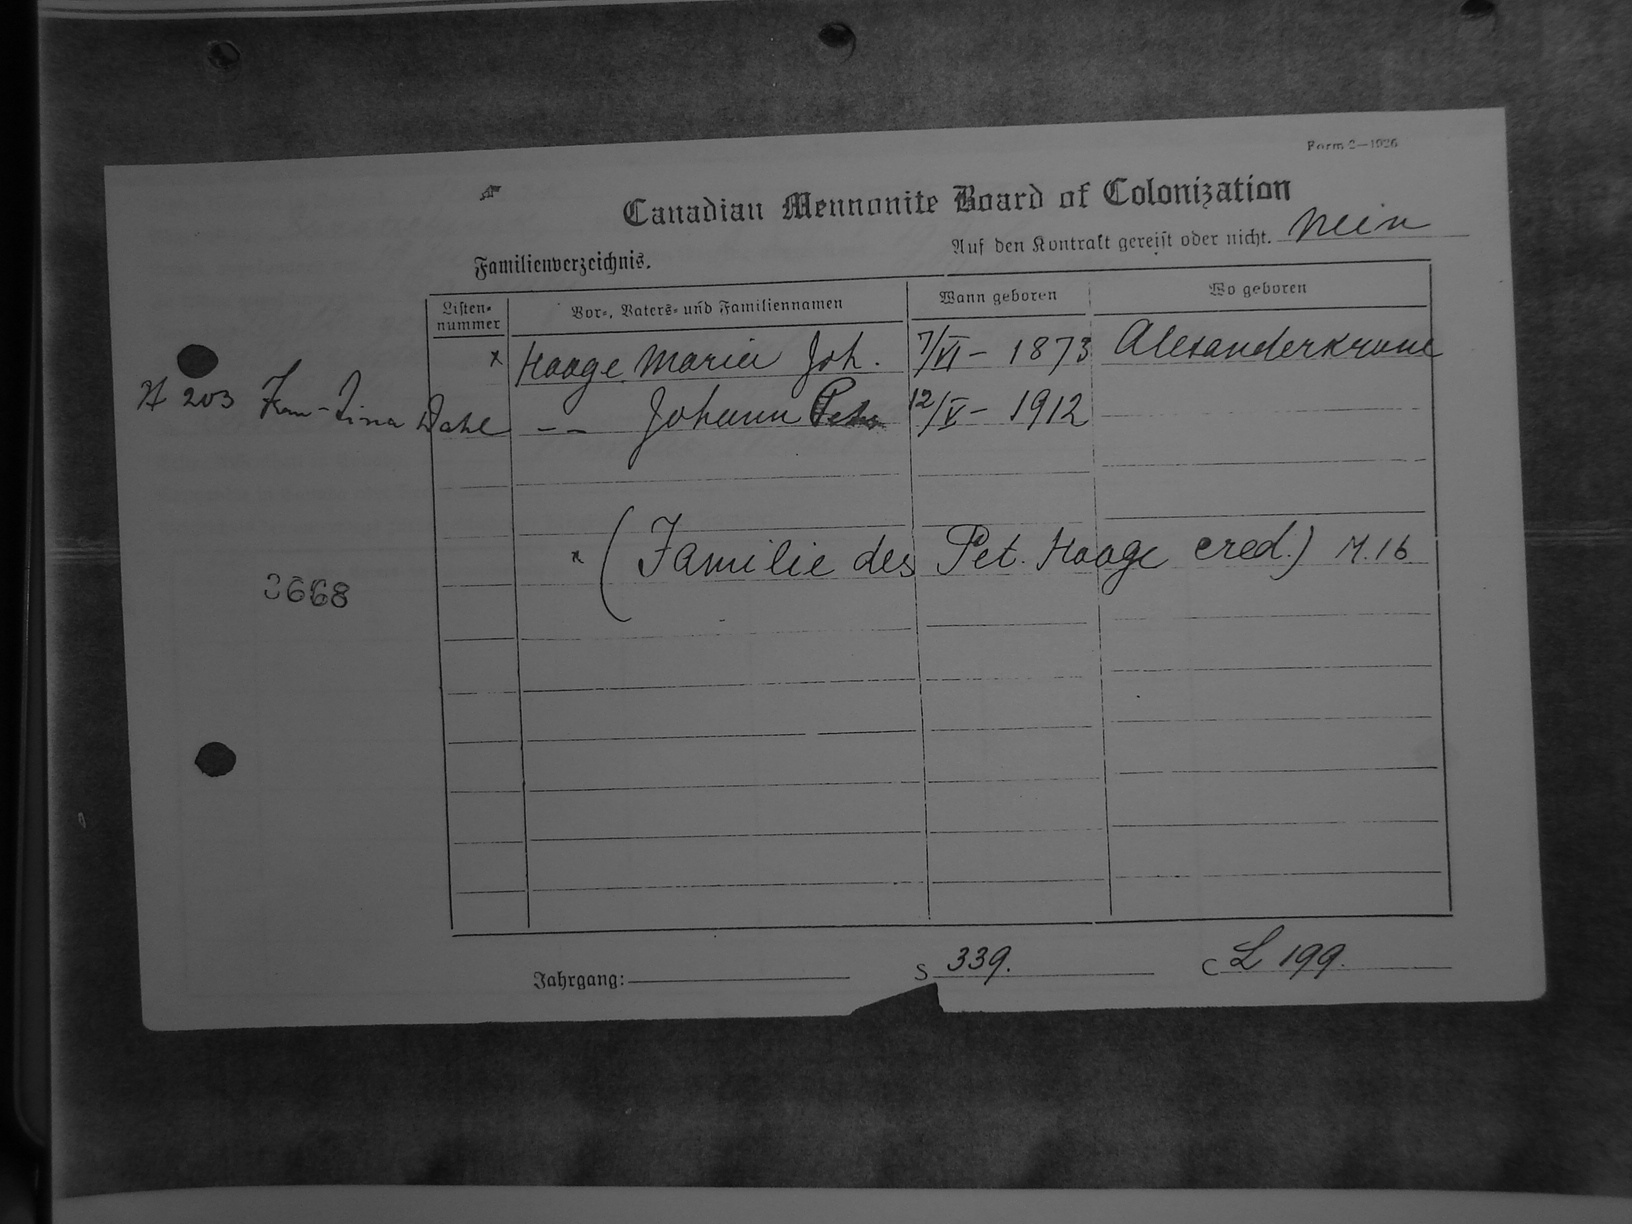 Form 2—1926
Canadian Mennonite Board of Colonization
Auf den Kontrakt gereist oder nicht. Nein
Familienverzeichnis.
Listen-
nummer
Vor-, Vaters- und Familiennamen
Wann geboren
Wo geboren
x Haage Maria Joh. 7/VI - 1873 Alexanderkrone
H 203 Frau - Tina Dahl -- Johann 12/V - 1912
x (Familie des Pet. Haage cred.) M.16
3668
Jahrgang: S 339. C L 199.